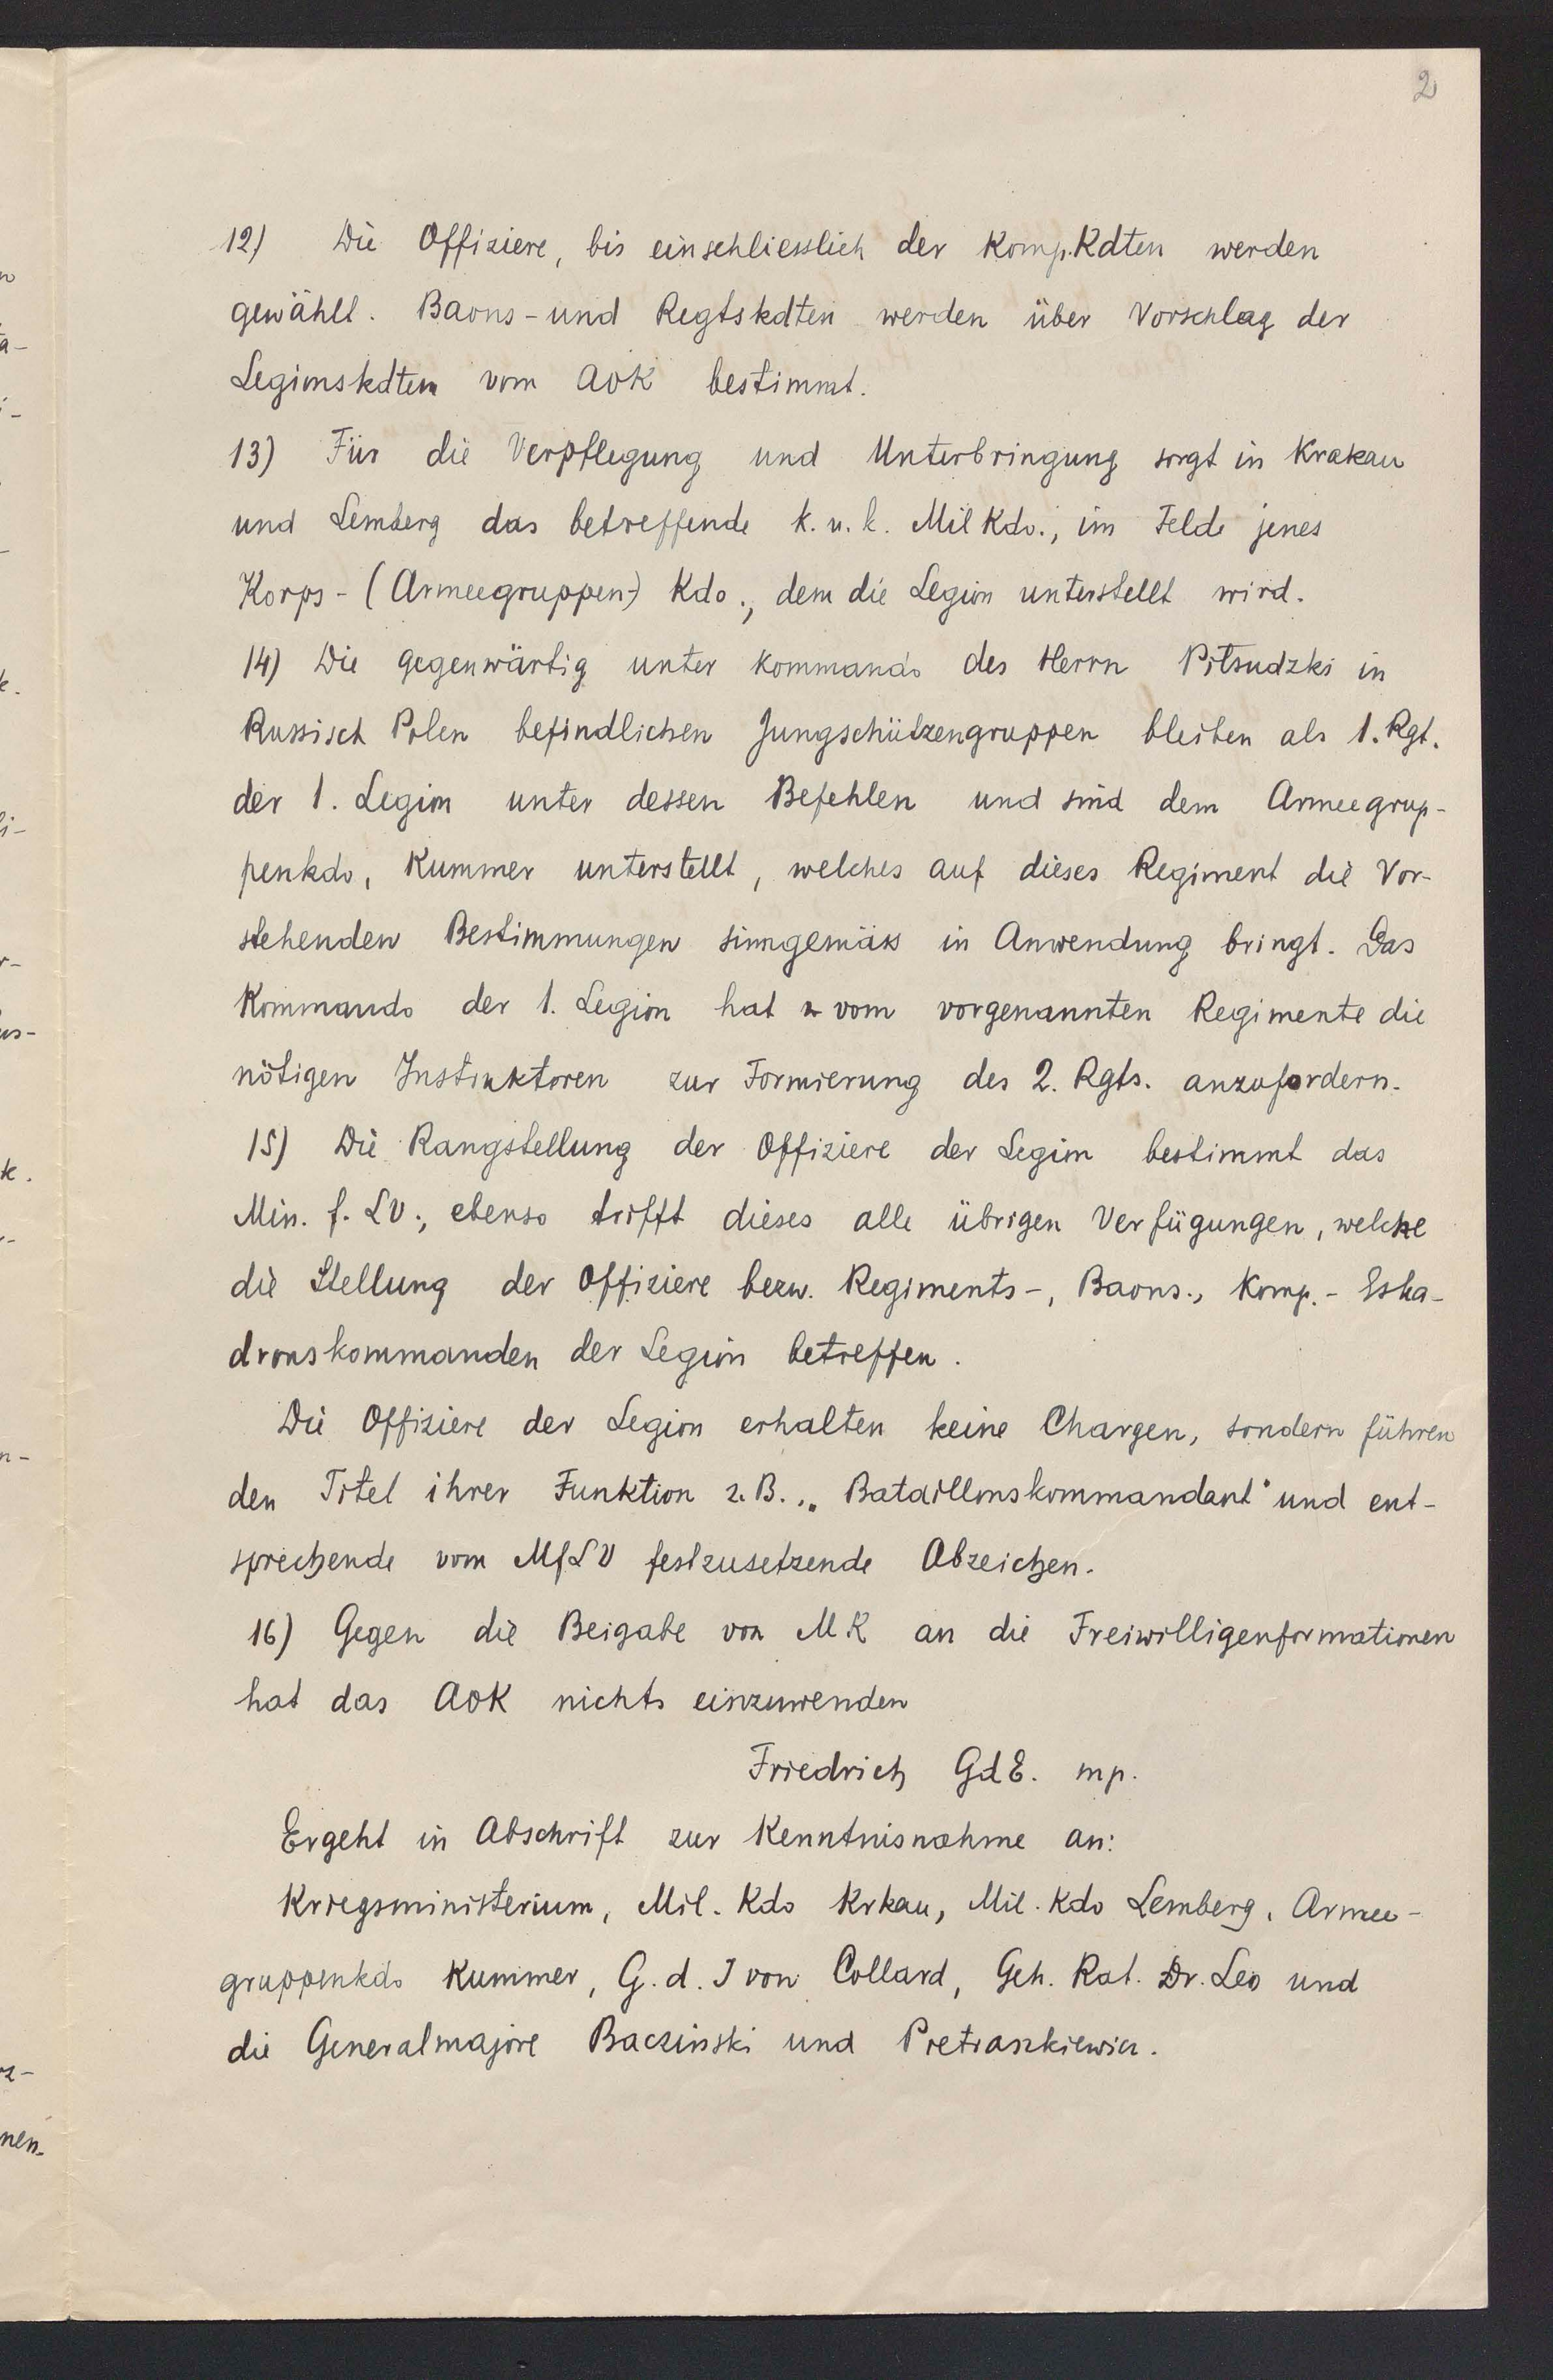 2
12) Die Offiziere, bis einschliesslich der Komp.Kdten werden
gewählt. Baons- und Regtskdten werden über Vorschlag der
Legionskdten vom AOK bestimmt.
13) Für die Verpflegung und Unterbringung sorgt in Krakau
und Lemberg das betreffende k. u. k. Mil Kdo., im Felde jenes
Korps- (Armeegruppen-) Kdo., dem die Legion unterstellt wird.
14) Die gegenwärtig unter Kommando des Herrn Pitsudzki in
Russisch Polen befindlichen Jungschützengruppen bleiben als 1. Rgt.
der 1. Legion unter dessen Befehlen und sind dem Armeegrup-
penkdo, Kummer unterstellt, welches auf dieses Regiment die Vor-
stehenden Bestimmungen sinngemäss in Anwendung bringt. Das
Kommando der 1. Legion hat vom vorgenannten Regimente die
nötigen Instruktoren zur Formierung des 2. Rgts. anzufordern.
15) Die Rangstellung der Offiziere der Legion bestimmt das
Min. f. LV., ebenso trifft dieses alle übrigen Verfügungen, welche
die Stellung der Offiziere bezw. Regiments-, Baons., Komp.- Eska-
dronskommanden der Legion betreffen.
Die Offiziere der Legion erhalten keine Chargen, sondern führen
den Titel ihrer Funktion z. B. „Bataillonskommandant" und ent-
sprechende vom MfLV festzusetzende Abzeichen.
16) Gegen die Beigabe von MK an die Freiwilligenformationen
hat das AOK nichts einzuwenden
Friedrich GdE. mp.
Ergeht in Abschrift zur Kenntnisnahme an:
Kriegsministerium, Mil. Kdo Krkau, Mil. Kdo Lemberg, Armee-
gruppenkdo Kummer, G. d. I von Collard, Geh. Rat. Dr. Leo und
die Generalmajore Baczinski und Pietraszkiewicz.